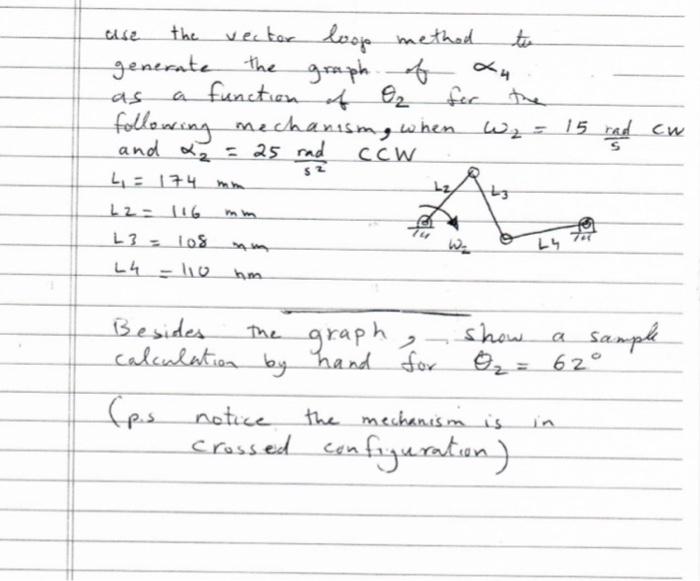 use the vector loop method to
generate the graph of α4
as a function of θ2 for the
following mechanism, when ω2 = 15 rad/s CW
and α2 = 25 rad/s² CCW
L1 = 174 mm
L2 = 116 mm
L3 = 108 mm
L4 = 110 mm
L2
L3
ω2
L4
Besides the graph, show a sample
calculation by hand for θ2 = 62°
(p.s notice the mechanism is in
crossed configuration)